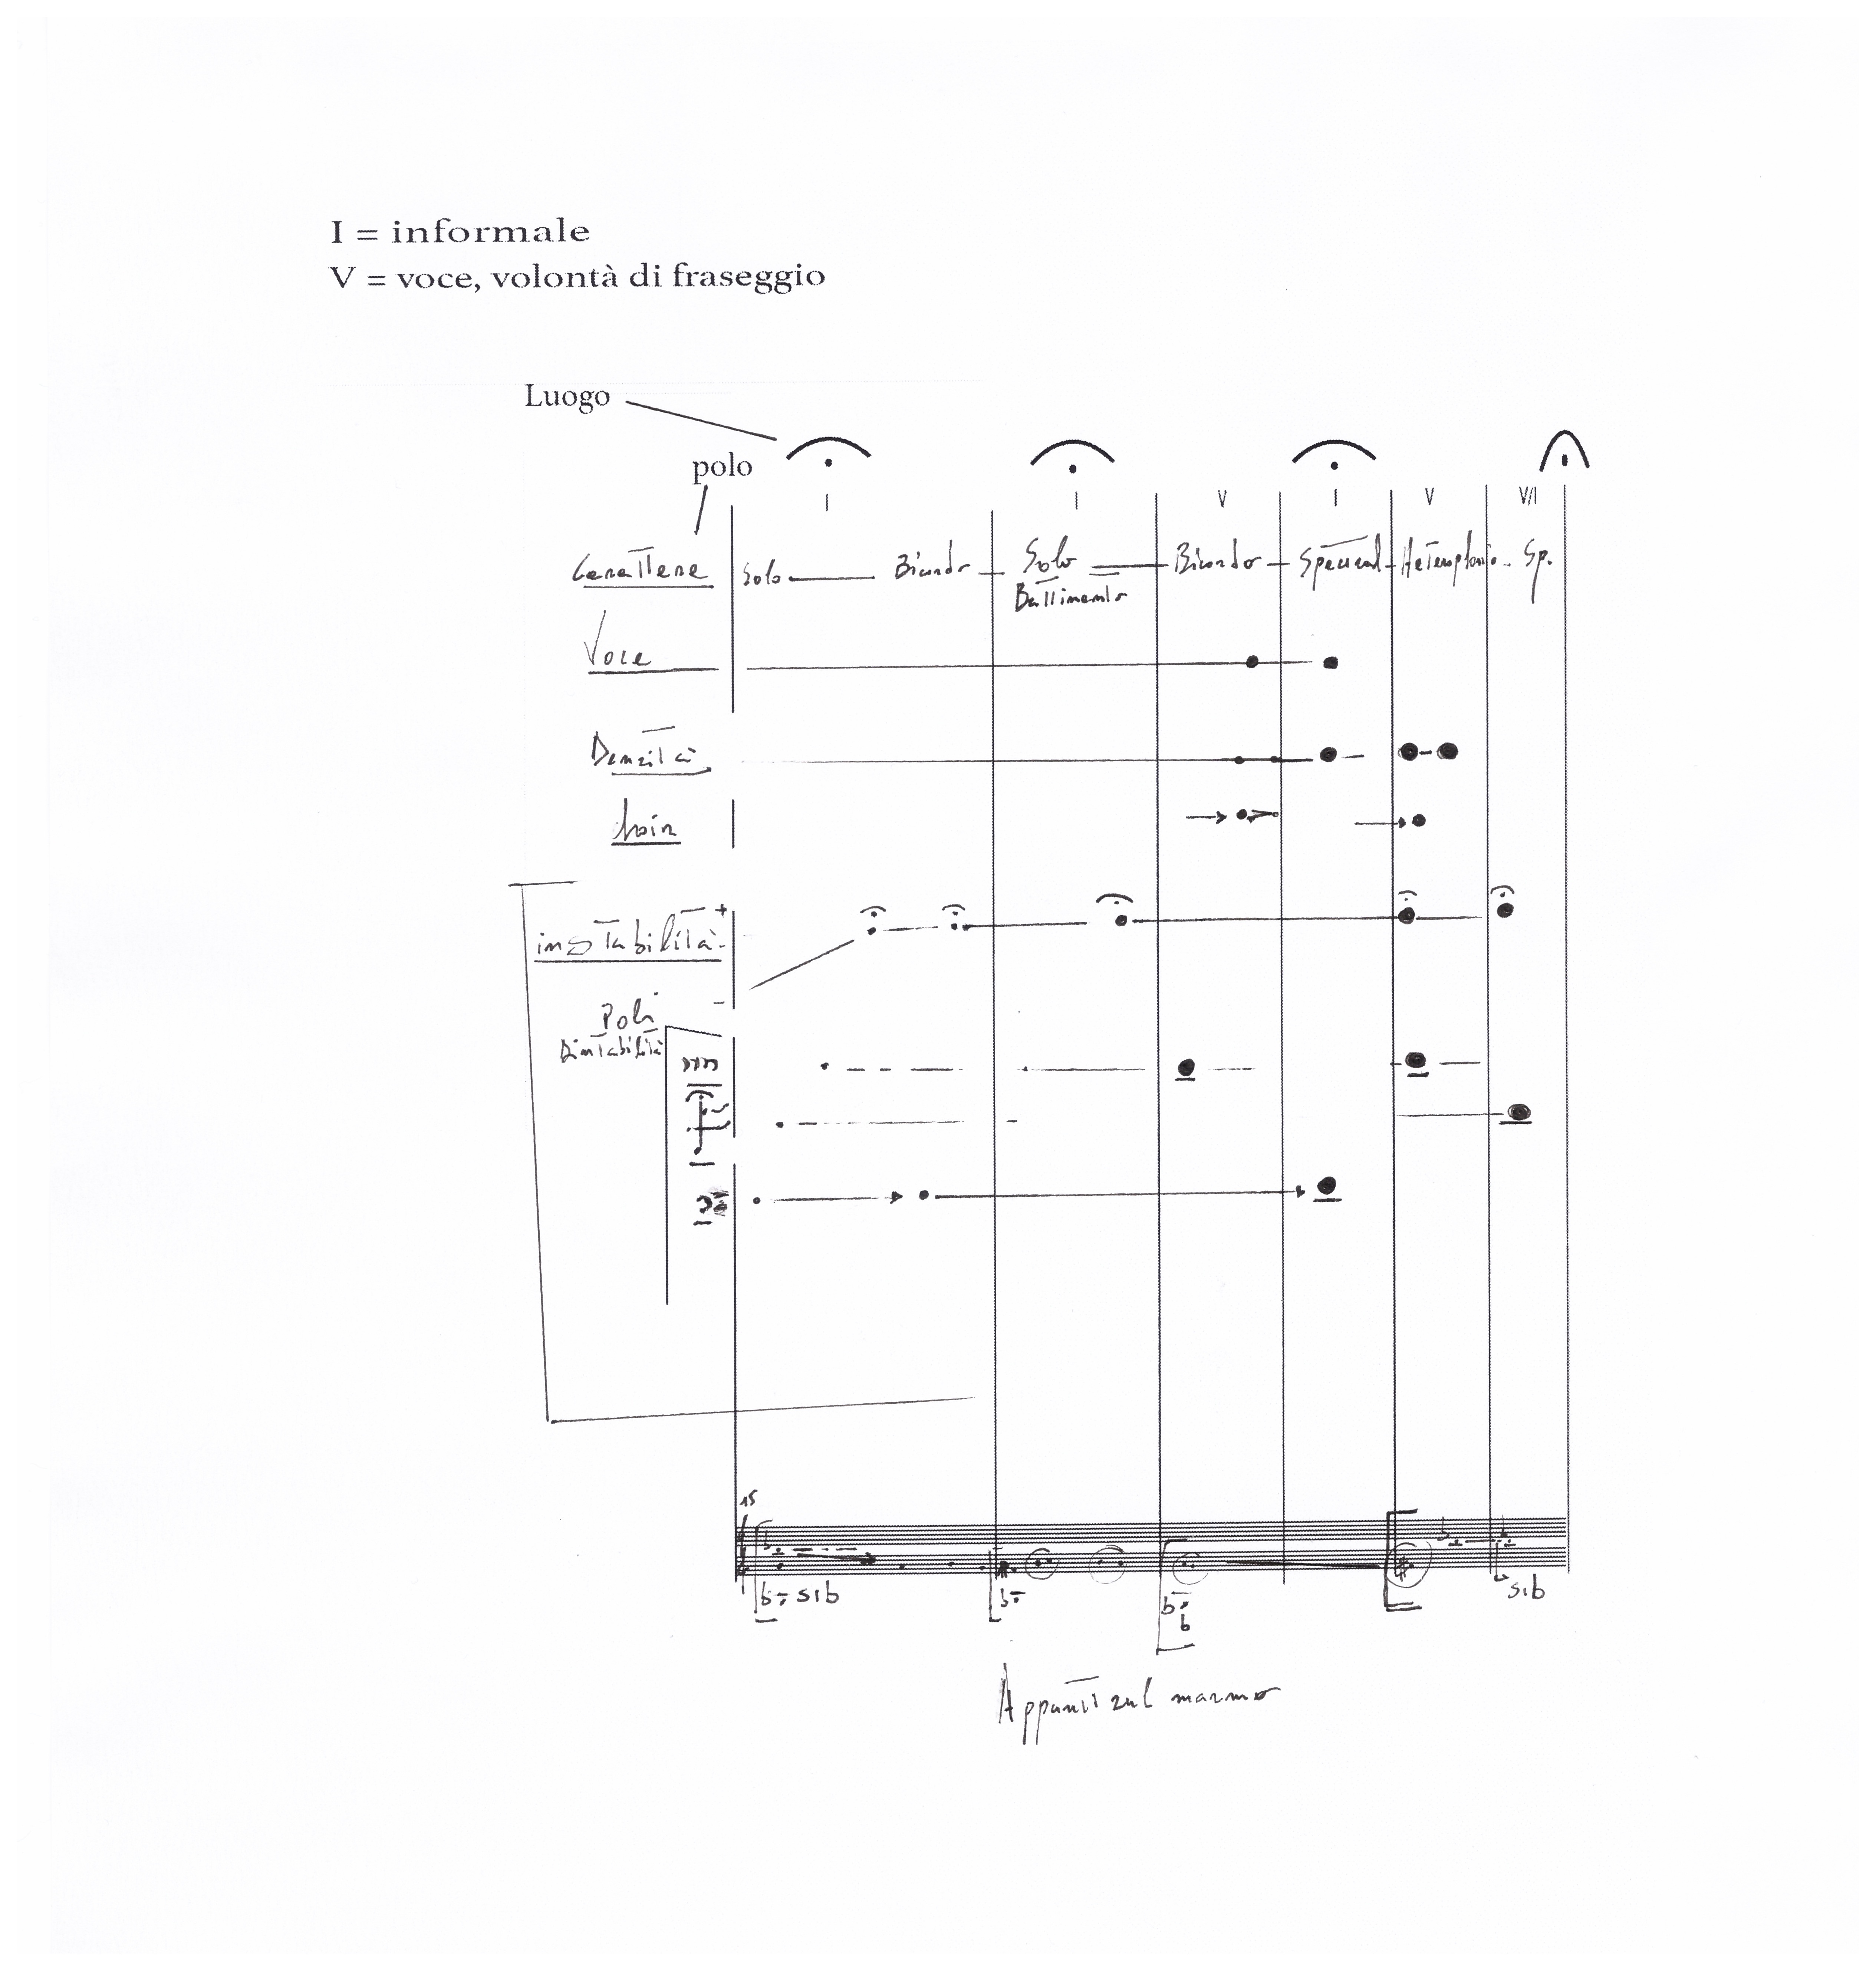 I = informale
V = voce, volontà di fraseggio
Luogo
polo
I I V I V V/I
Carattere Solo Bicordo Solo Bicordo Spectral Heterophonie Sp.
Battimento
Voce
Densità
instabilità + -
Poli
D'instabilità
15
b sib b b sib
b
Appunti sul marmo